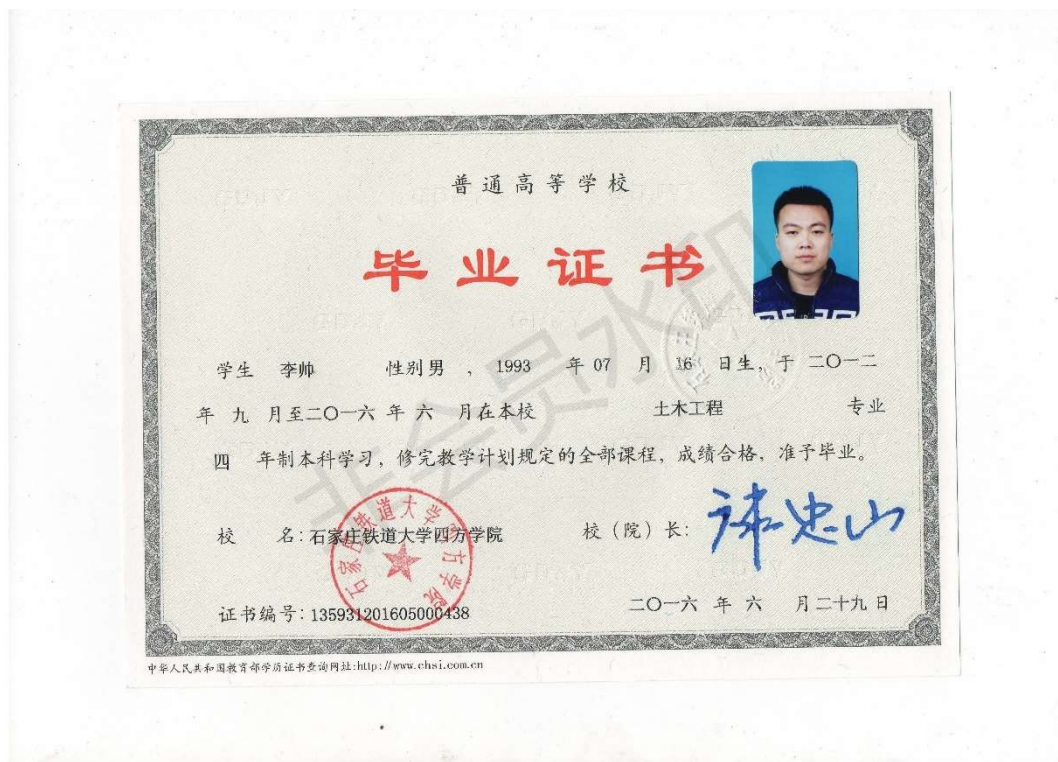 普通高等学校
毕业证书
学生 李帅 性别男 , 1993 年 07 月 16 日生, 于 二〇一二
年 九 月至二〇一六 年 六 月在本校 土木工程 专业
四 年制本科学习, 修完教学计划规定的全部课程, 成绩合格, 准予毕业。
校 名: 石家庄铁道大学四方学院 校 (院) 长:
证书编号: 135931201605000438 二〇一六 年 六 月二十九日
中华人民共和国教育部学历证书查询网址:http://www.chsi.com.cn
石家庄铁道大学四方学院
非会员水印